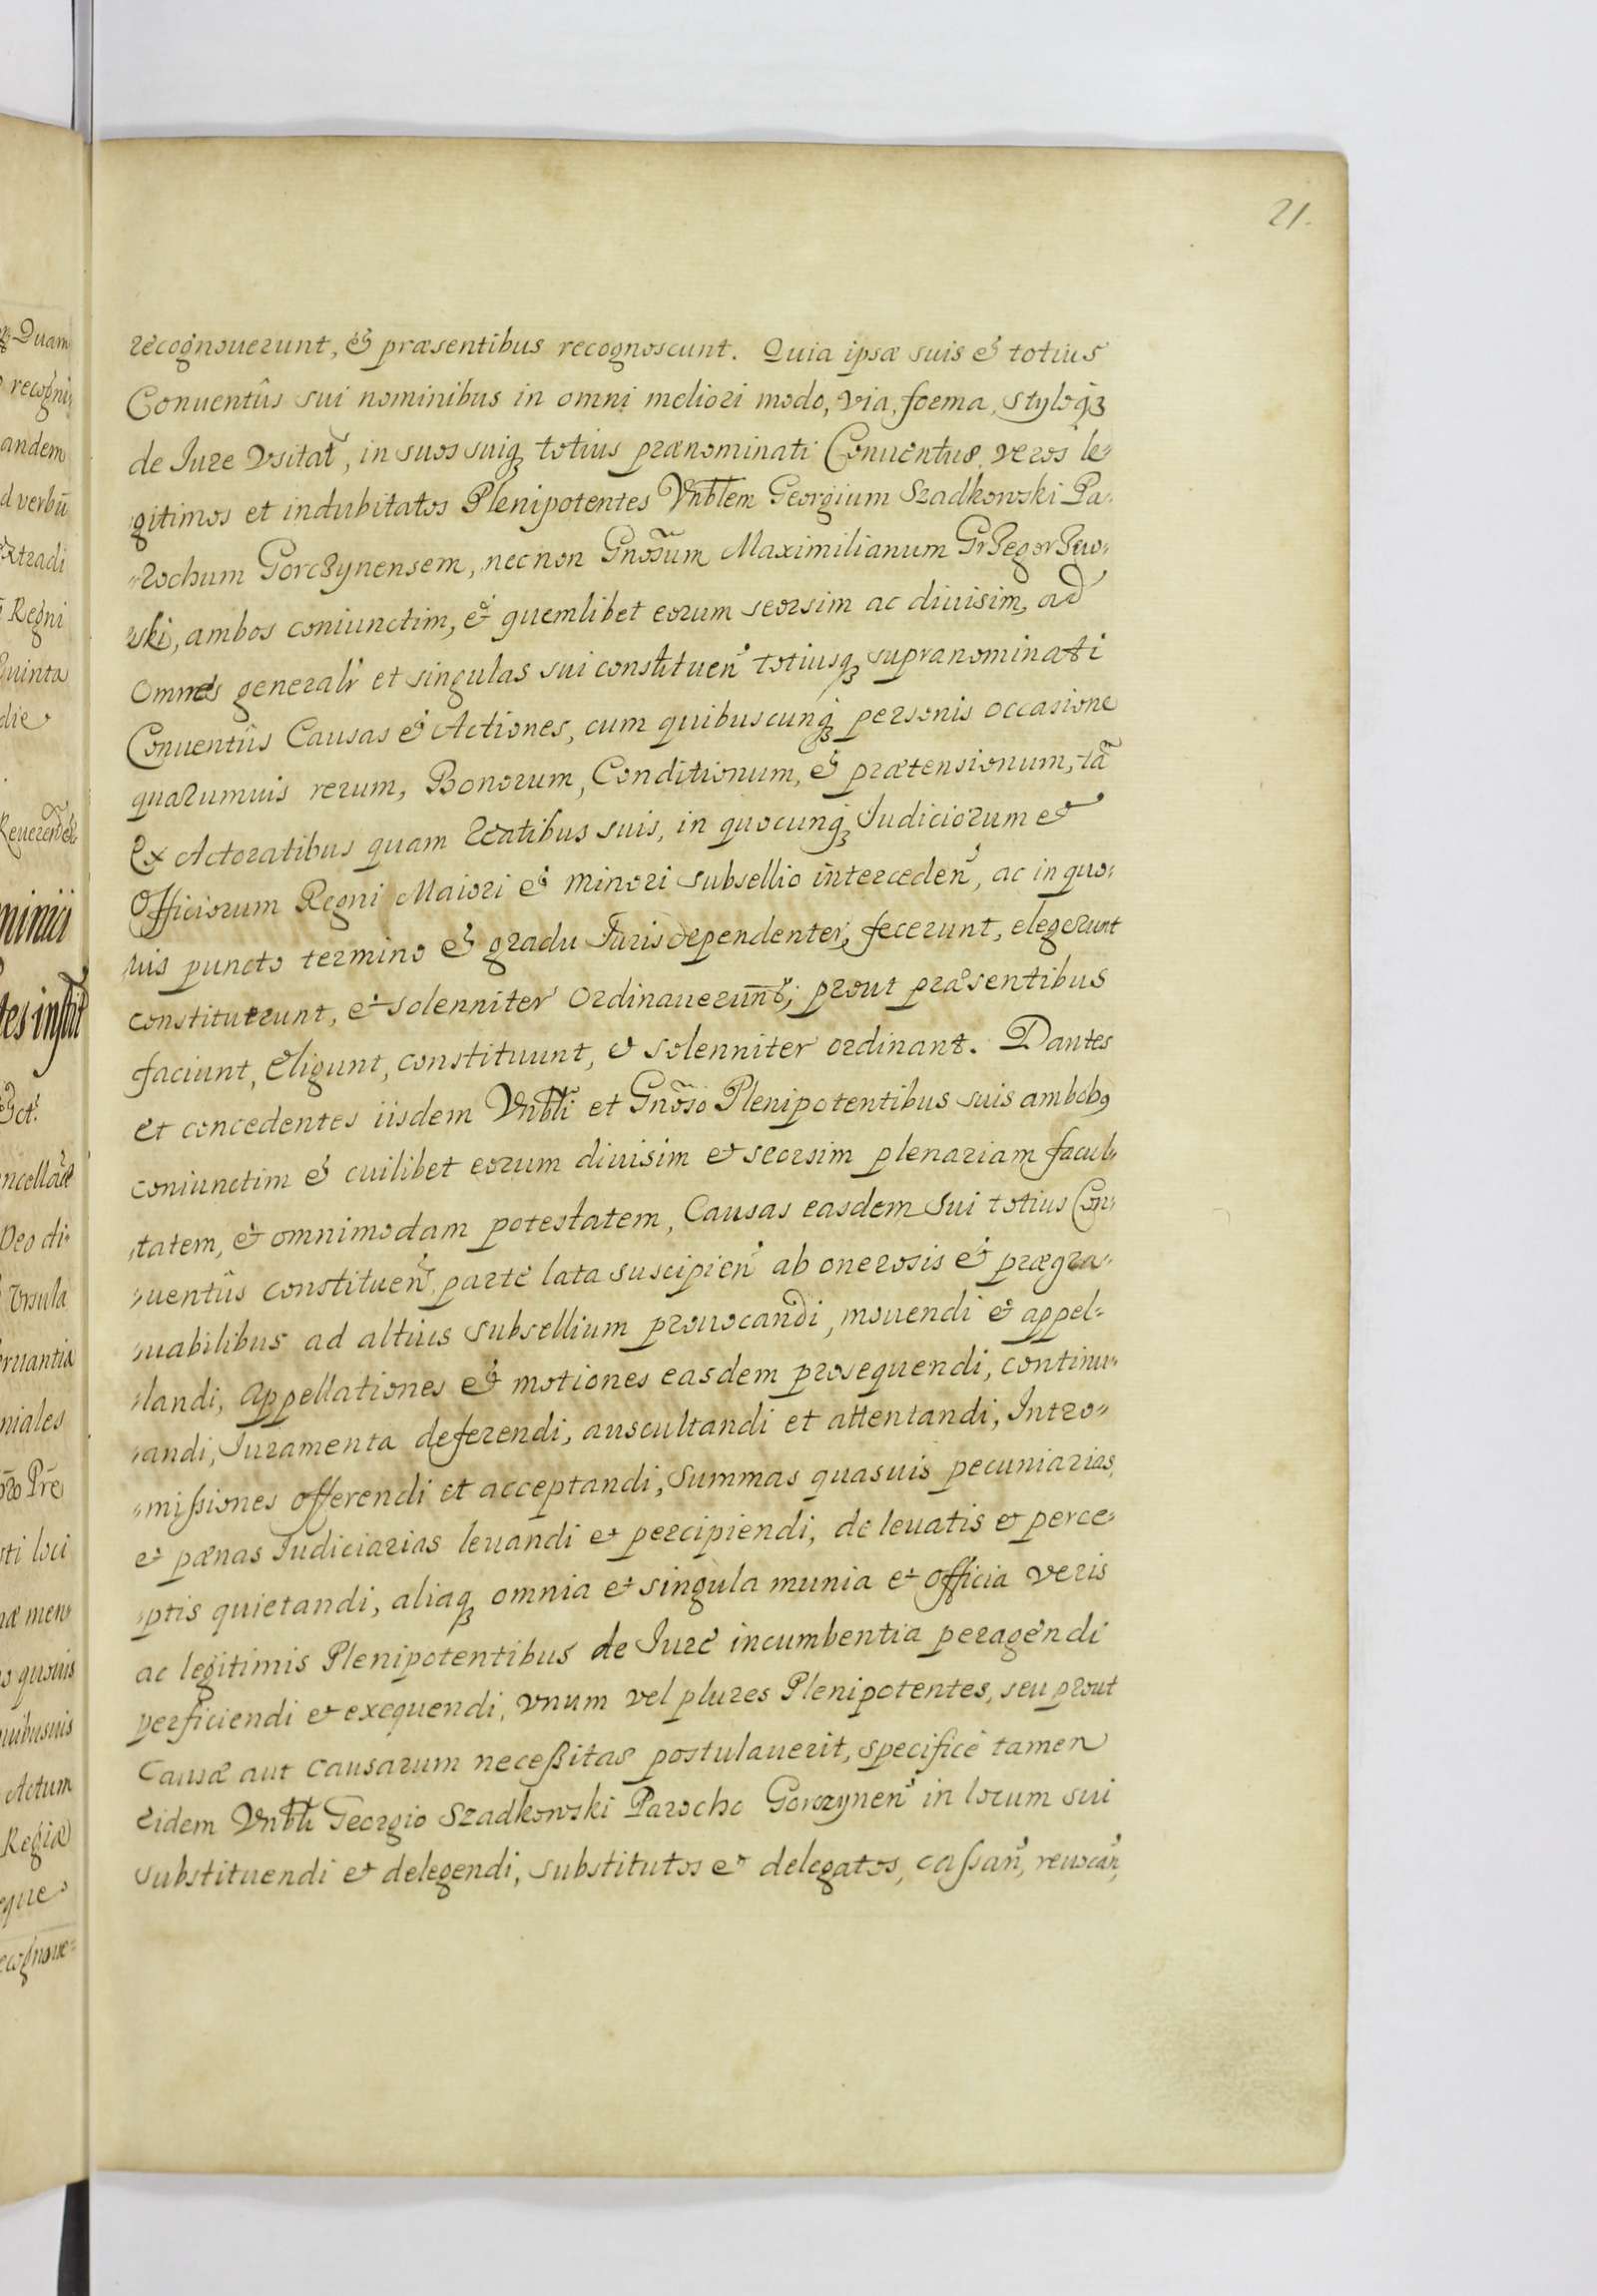 21.
recognouerunt, & præsentibus recognoscunt. Quia ipsæ suis & totius
Conuentûs sui nominibus in omni meliori modo, via, foema, styloq3
de Jure Vsitat, in suos suiq3 totius prænominati Conuentus, veros le-
gitimos et indubitatos Plenipotentes Vnblem Georgium Szadkowski Pa-
-rochum Gorczynensem, nec non Gnosum Maximilianum Grzegorzew-
ski, ambos coniunctim, & quemlibet eorum seorsim ac diuisim, ad
omnes generalr et singulas sui constituen totiusq3 supranominati
Conuentûs Causas & Actiones, cum quibuscunq3 personis occasione
quarumuis rerum, Bonorum, Conditionum, & prætensionum, tã
ex Actoratibus quam Reatibus suis, in quocunq3 Judiciorum et
Officiorum Regni Maiori & minori subsellio interceden, ac in quo-
uis puncto termino & gradu Juris dependenter, fecerunt, elegerunt
constituerunt, & solenniter ordinauerunt, prout præsentibus
faciunt, eligunt, constituunt, & solenniter ordinant. Dantes
et concedentes iisdem Vnbli et Gnõso Plenipotentibus suis ambobg
coniunctim & cuilibet eorum diuisim et seorsim plenariam facul-
-tatem, & omnimodam potestatem, Causas easdem sui totius Con-
-uentûs constituen parte lata suscipien ab onerosis & prægra-
-uabilibus ad altius subsellium prouocandi, mouendi & appel-
-landi, appellationes & motiones easdem prosequendi, continu-
-andi, Juramenta deferendi, auscultandi et attentandi, Intro-
-mißiones offerendi et acceptandi, summas quasuis pecuniarias,
et pænas Judiciarias leuandi et percipiendi, de leuatis et perce-
-ptis quietandi, aliaq3 omnia et singula munia et officia veris
ac legitimis Plenipotentibus de Jure incumbentia peragendi
perficiendi et exequendi, vnum vel plures Plenipotentes, seu prout
Causæ aut causarum neceßitas postulauerit, specificè tamen
eidem Vnbli Georgio Szadkowski Parocho Gorczynen in locum sui
substituendi et delegendi, substitutos et delegatos, caßan, reuocan,